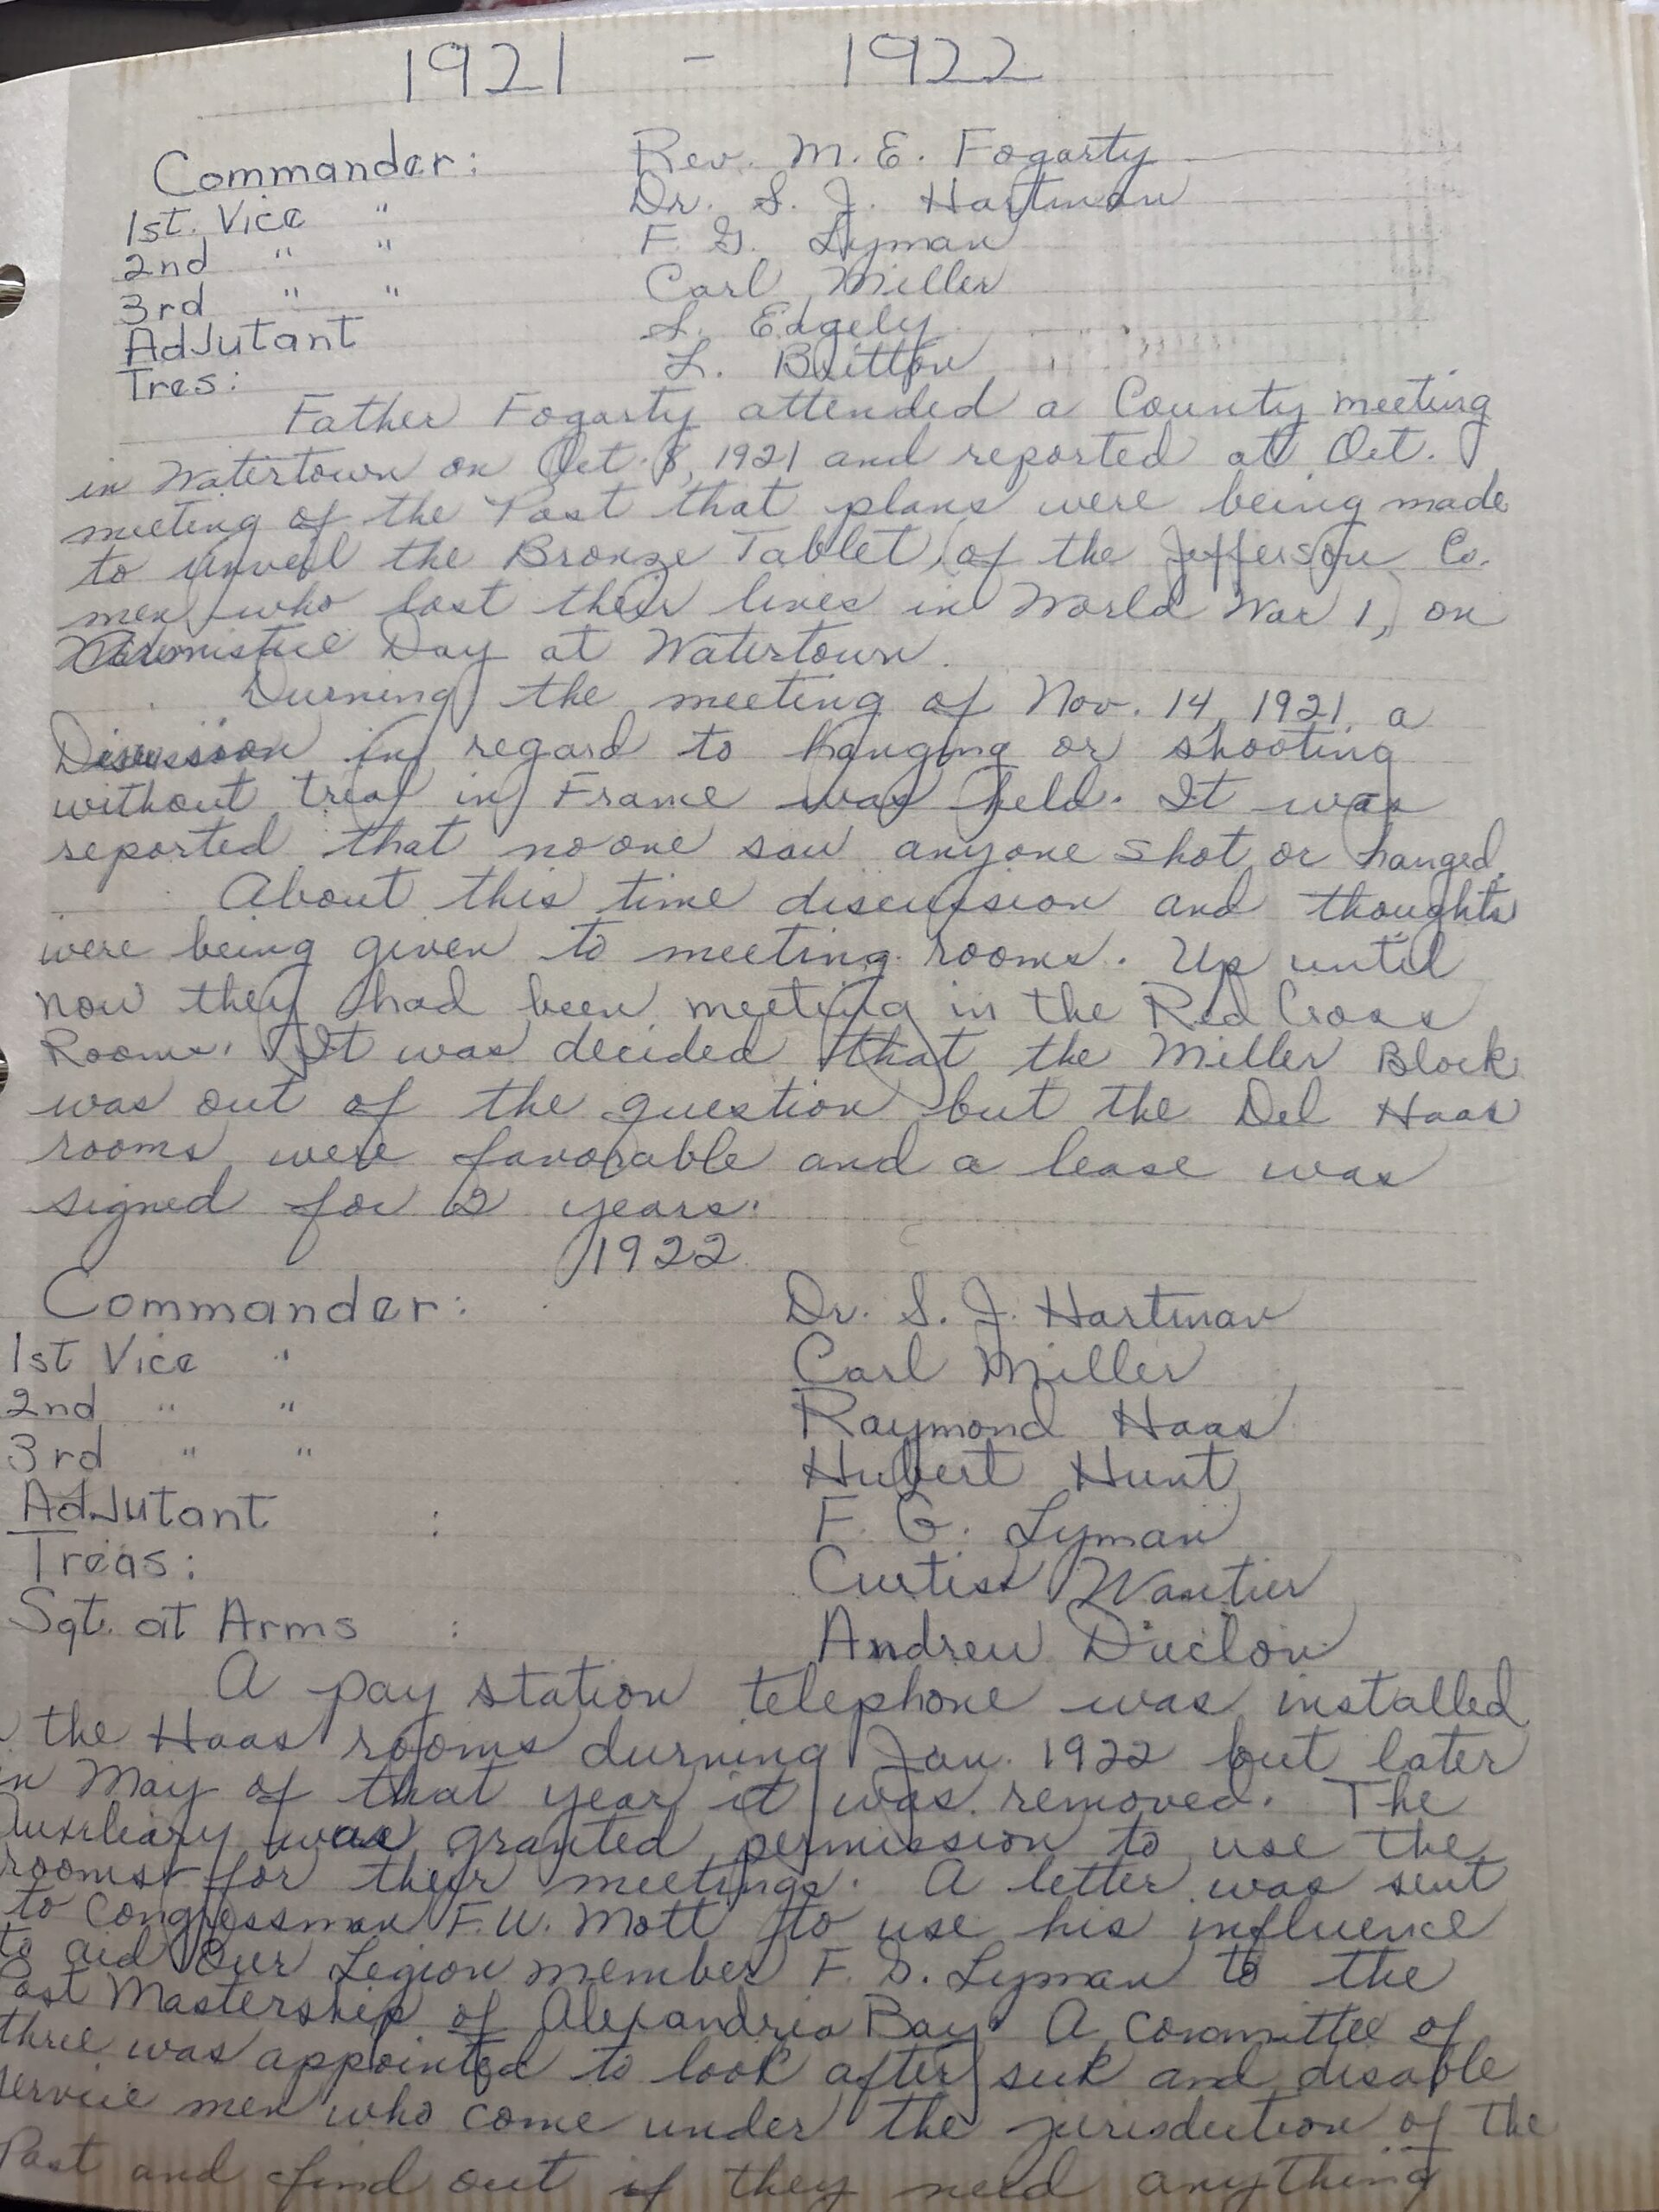 1921 - 1922
Commander: Rev. M. E. Fogarty
1st. Vice " Dr. S. J. Hartman
2nd " " F. G. Lyman
3rd " " Carl Miller
AdJutant S. Edgely
Tres: L. Britton
Father Fogarty attended a County meeting
in Watertown on Oct. 8, 1921 and reported at Oct.
meeting of the Post that plans were being made
to unveil the Bronze Tablet, of the Jefferson Co.
men who lost their lives in World War 1, on
Armistice Day at Watertown.
Durning the meeting of Nov. 14, 1921, a
Discussion in regard to hanging or shooting
without trial in France was held. It was
reported that no one saw anyone shot or hanged.
About this time discussion and thoughts
were being given to meeting rooms. Up until
now they had been meeting in the Red Cross
Rooms. It was decided that the Miller Block
was out of the question but the Del Haas
rooms were favorable and a lease was
signed for 2 years.
1922
Commander: Dr. S. J. Hartman
1st Vice " Carl Miller
2nd " " Raymond Haas
3rd " " Hubert Hunt
AdJutant : F. G. Lyman
Treas: Curtiss Wantier
Sgt. at Arms : Andrew Duclon
A pay station telephone was installed
the Haas rooms durning Jan. 1922 but later
in May of that year it was removed. The
Auxiliary was granted permission to use the
rooms for their meetings. A letter was sent
to Congressman F. W. Mott to use his influence
to aid our Legion member F. G. Lyman to the
Post Mastership of Alexandria Bay. A committee of
three was appointed to look after sick and disable
service men who come under the jurisdiction of the
Post and find out if they need anything